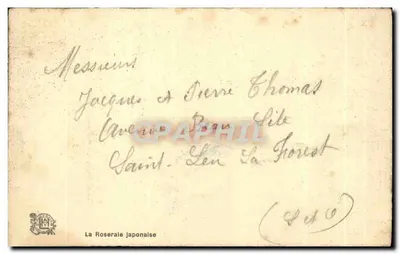 Messieurs
Jacques et Pierre Thomas
Avenue Beau Site
Saint-Leu La Forest
(S et O)
La Roseraie japonaise